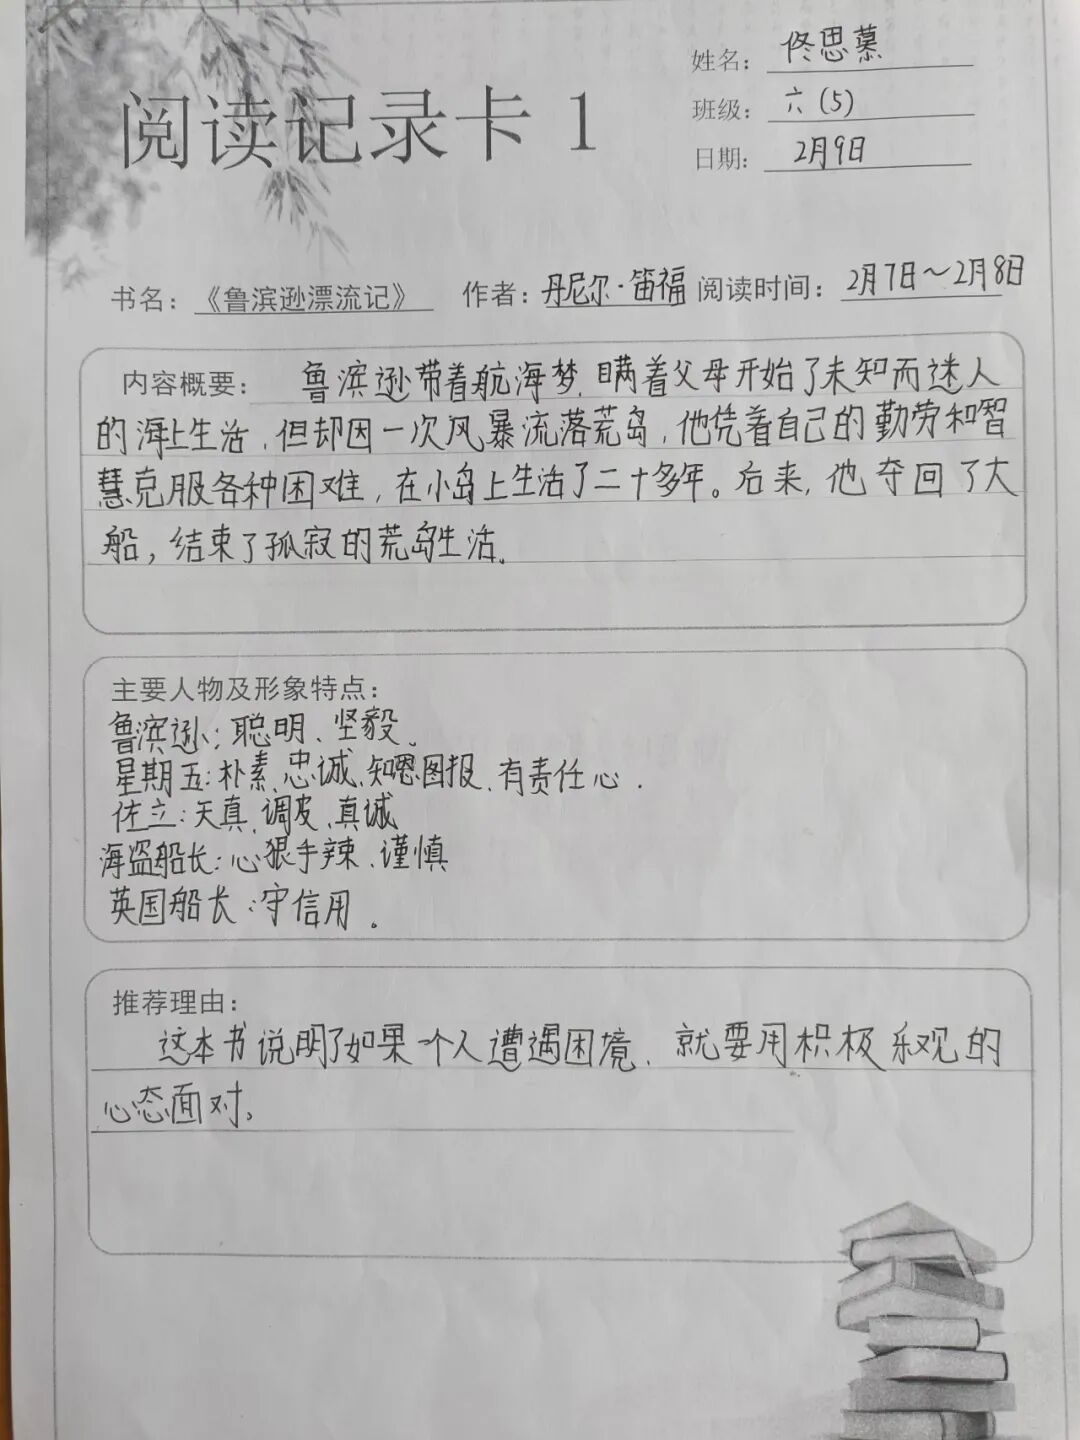 阅读记录卡 1
姓名：佟思慕
班级：六(5)
日期：2月9日
书名：《鲁滨逊漂流记》 作者：丹尼尔·笛福 阅读时间：2月7日～2月8日
内容概要：鲁滨逊带着航海梦，瞒着父母开始了未知而迷人
的海上生活，但却因一次风暴流落荒岛，他凭着自己的勤劳和智
慧克服各种困难，在小岛上生活了二十多年。后来，他夺回了大
船，结束了孤寂的荒岛生活。
主要人物及形象特点：
鲁滨逊：聪明、坚毅。
星期五：朴素、忠诚、知恩图报、有责任心．
佐立：天真、调皮、真诚
海盗船长：心狠手辣、谨慎
英国船长：守信用．
推荐理由：
这本书说明了如果一个人遭遇困境，就要用积极乐观的
心态面对。